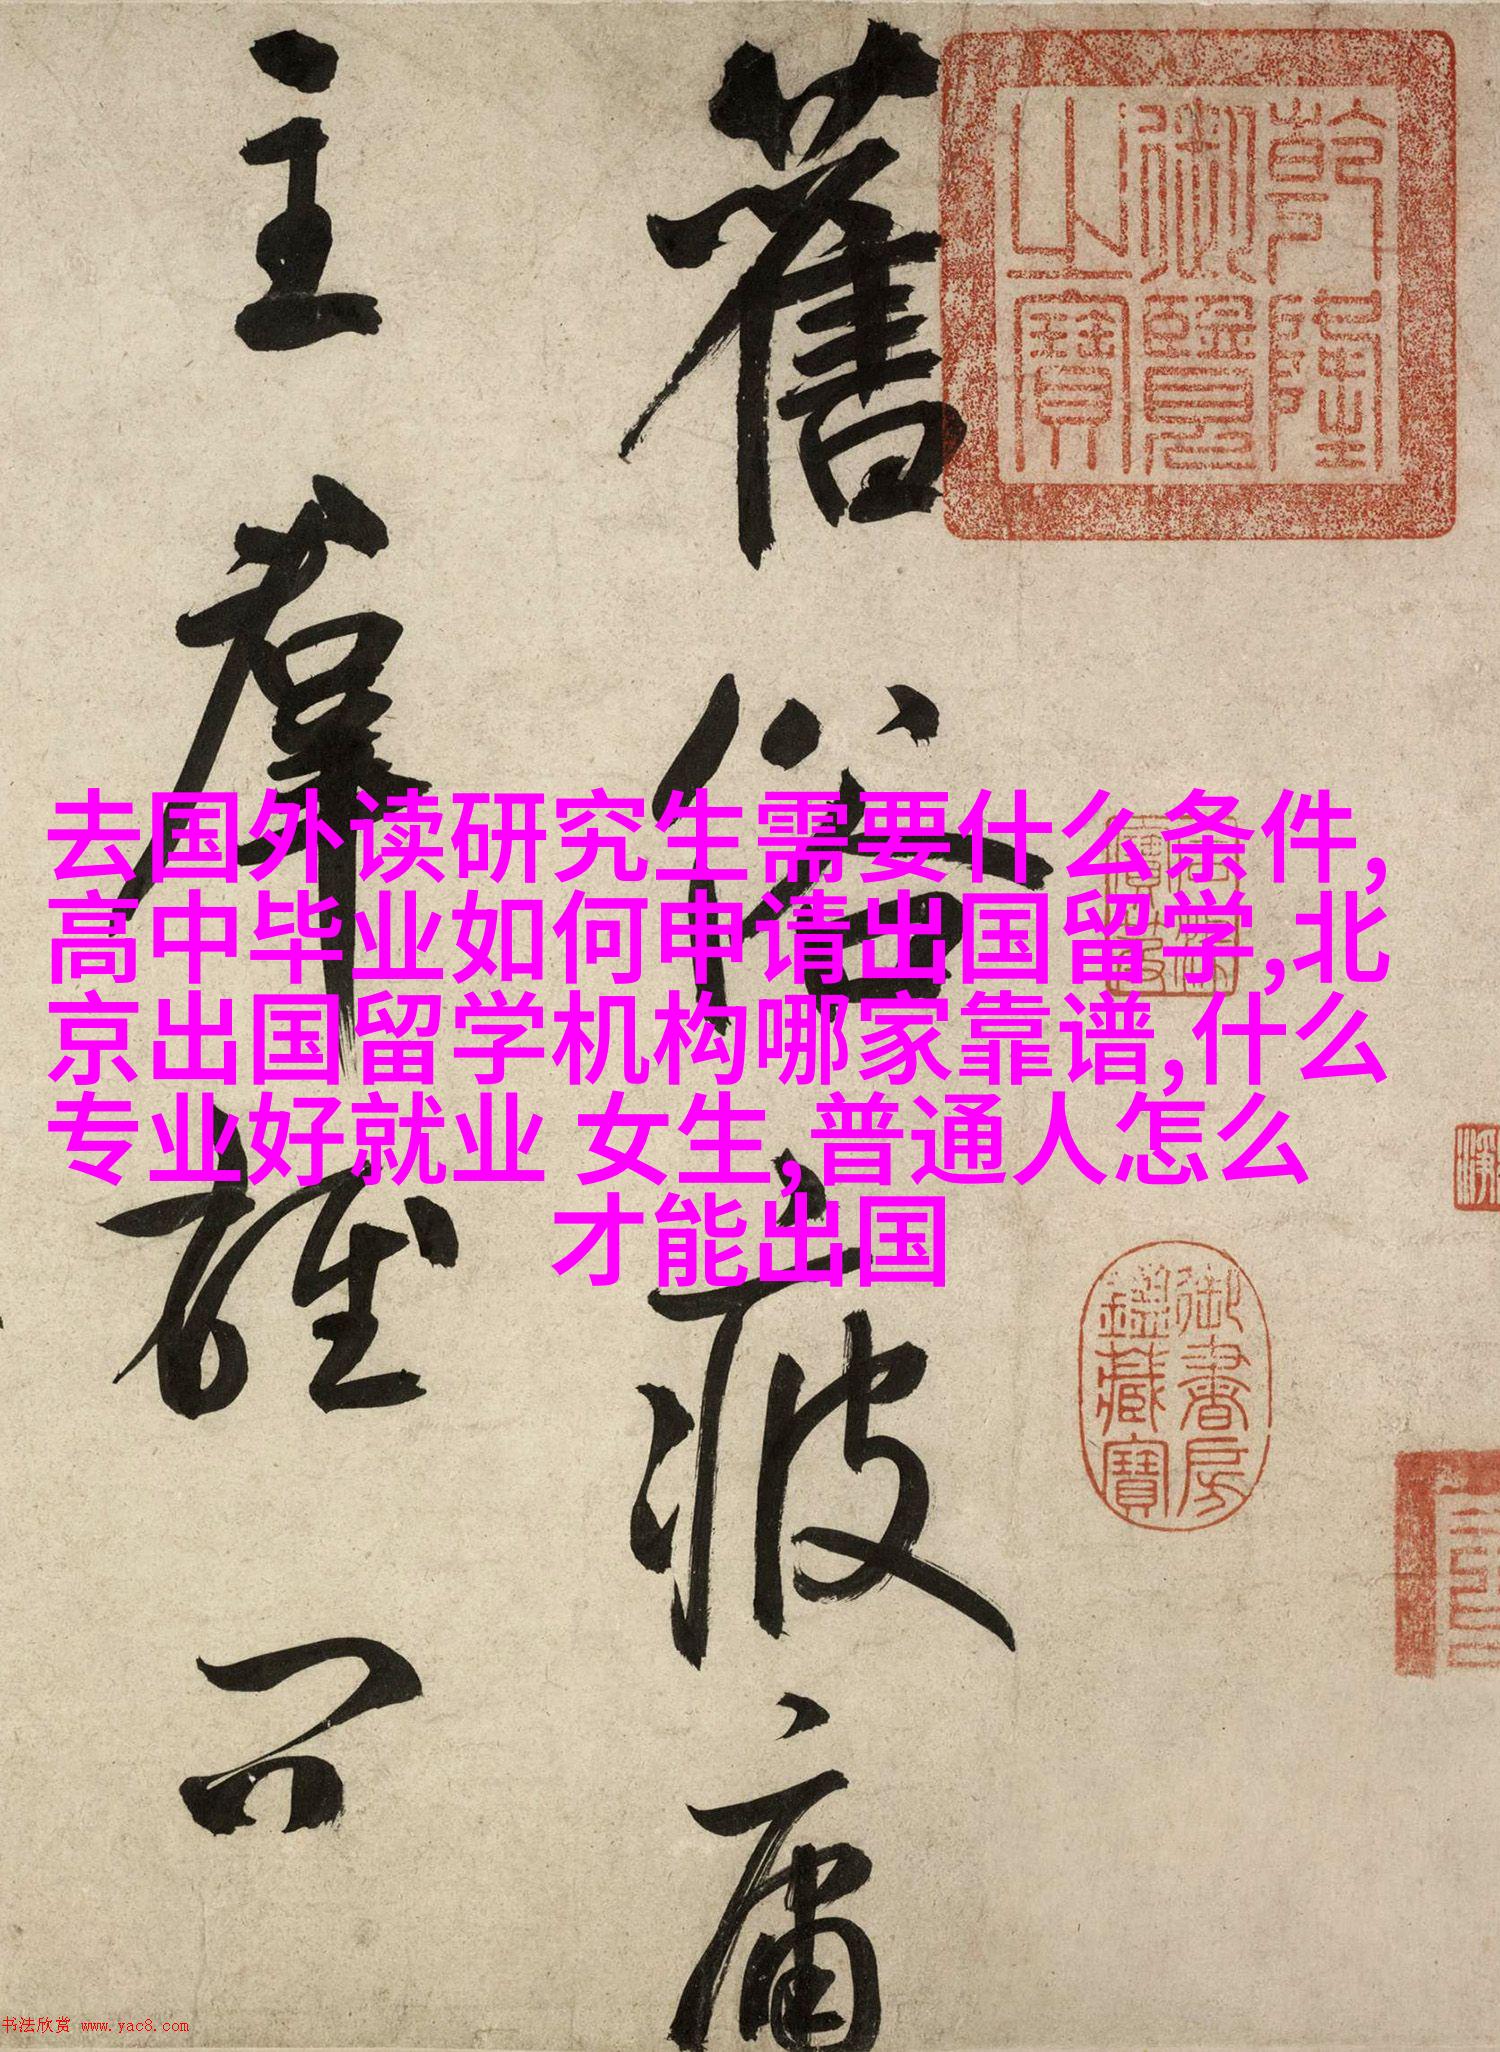 去国外读研究生需要什么条件,
高中毕业如何申请出国留学,北
京出国留学机构哪家靠谱,什么
专业好就业 女生,普通人怎么
才能出国
乾隆
御覽
之寶
御書房
鑑藏寶
舊俗疲庸
主羣雄問
书法欣赏 www.yac8.com